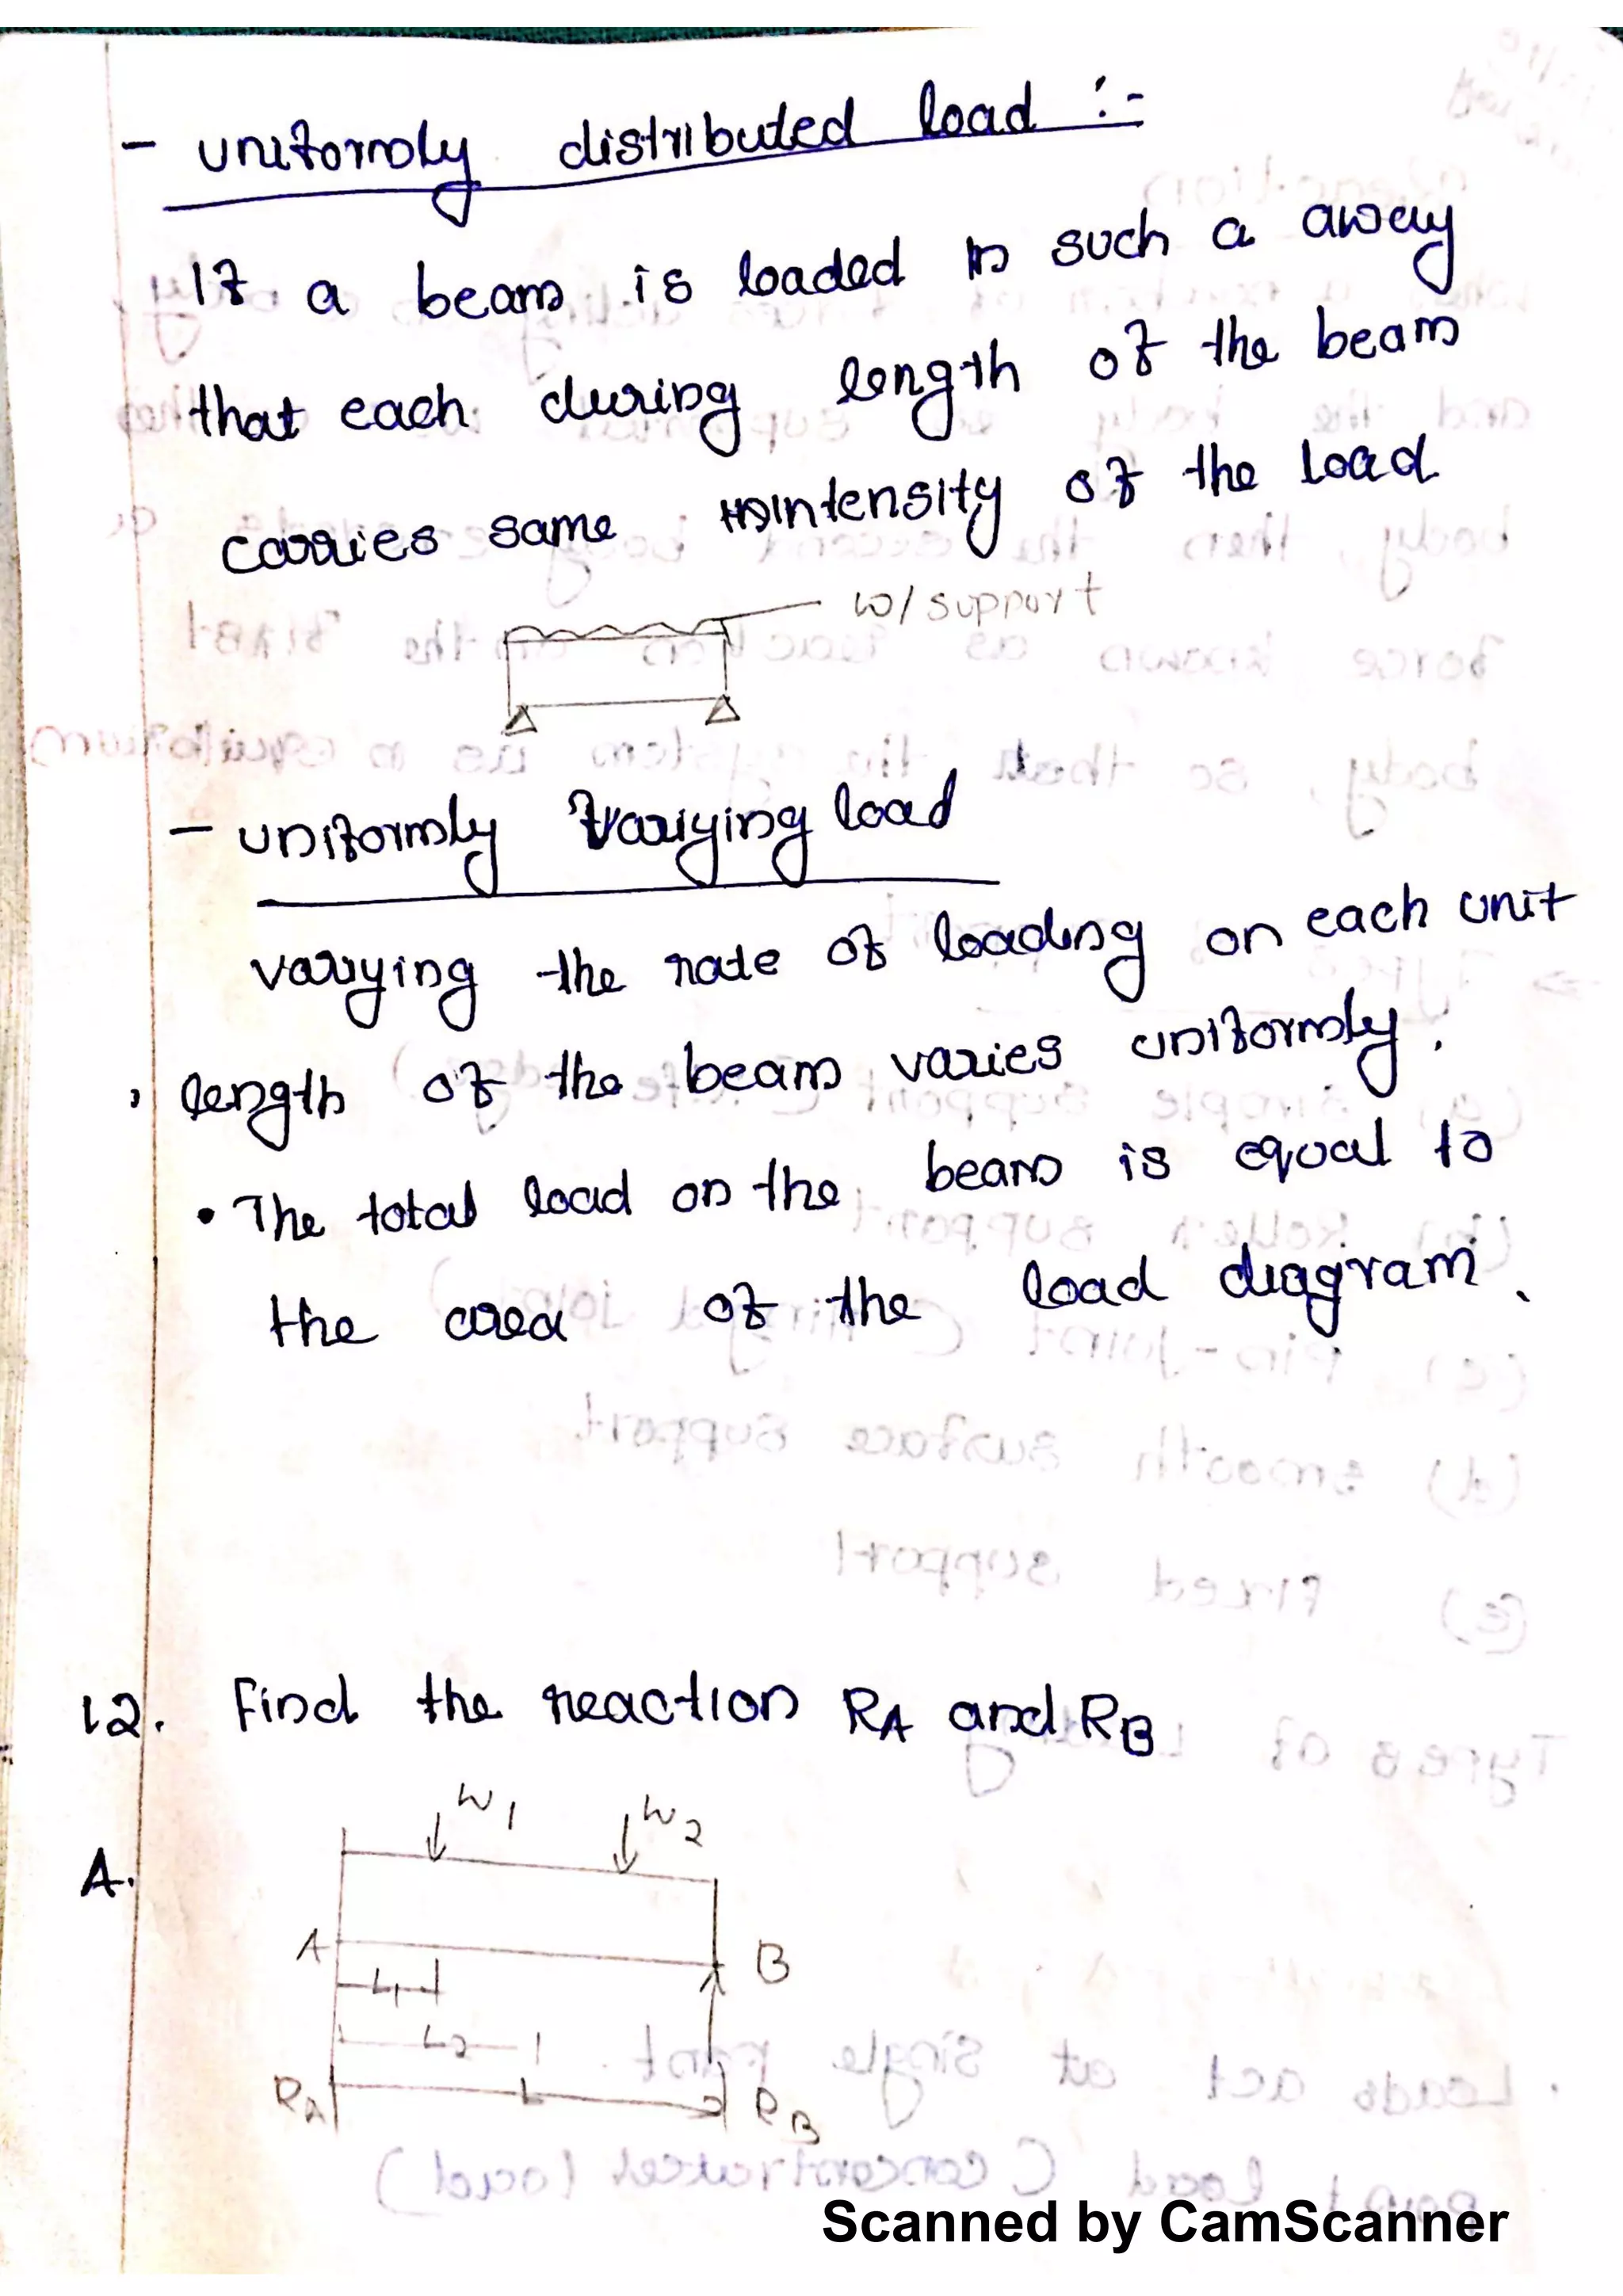 - uniformly distributed load :-
If a beam is loaded in such a away
that each during length of the beam
carries same intensity of the load
w/support
- uniformly varying load
varying the rate of loading on each unit
length of the beam varies uniformly.
• The total load on the beam is equal to
the area of the load diagram.
12. Find the reaction RA and RB
W1 W2
A.
A B
L1
L2
RA L RB
Scanned by CamScanner